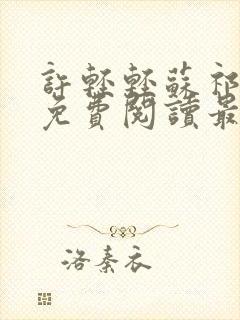 許輕輕蘇祁
免費閱讀最
洛秦衣